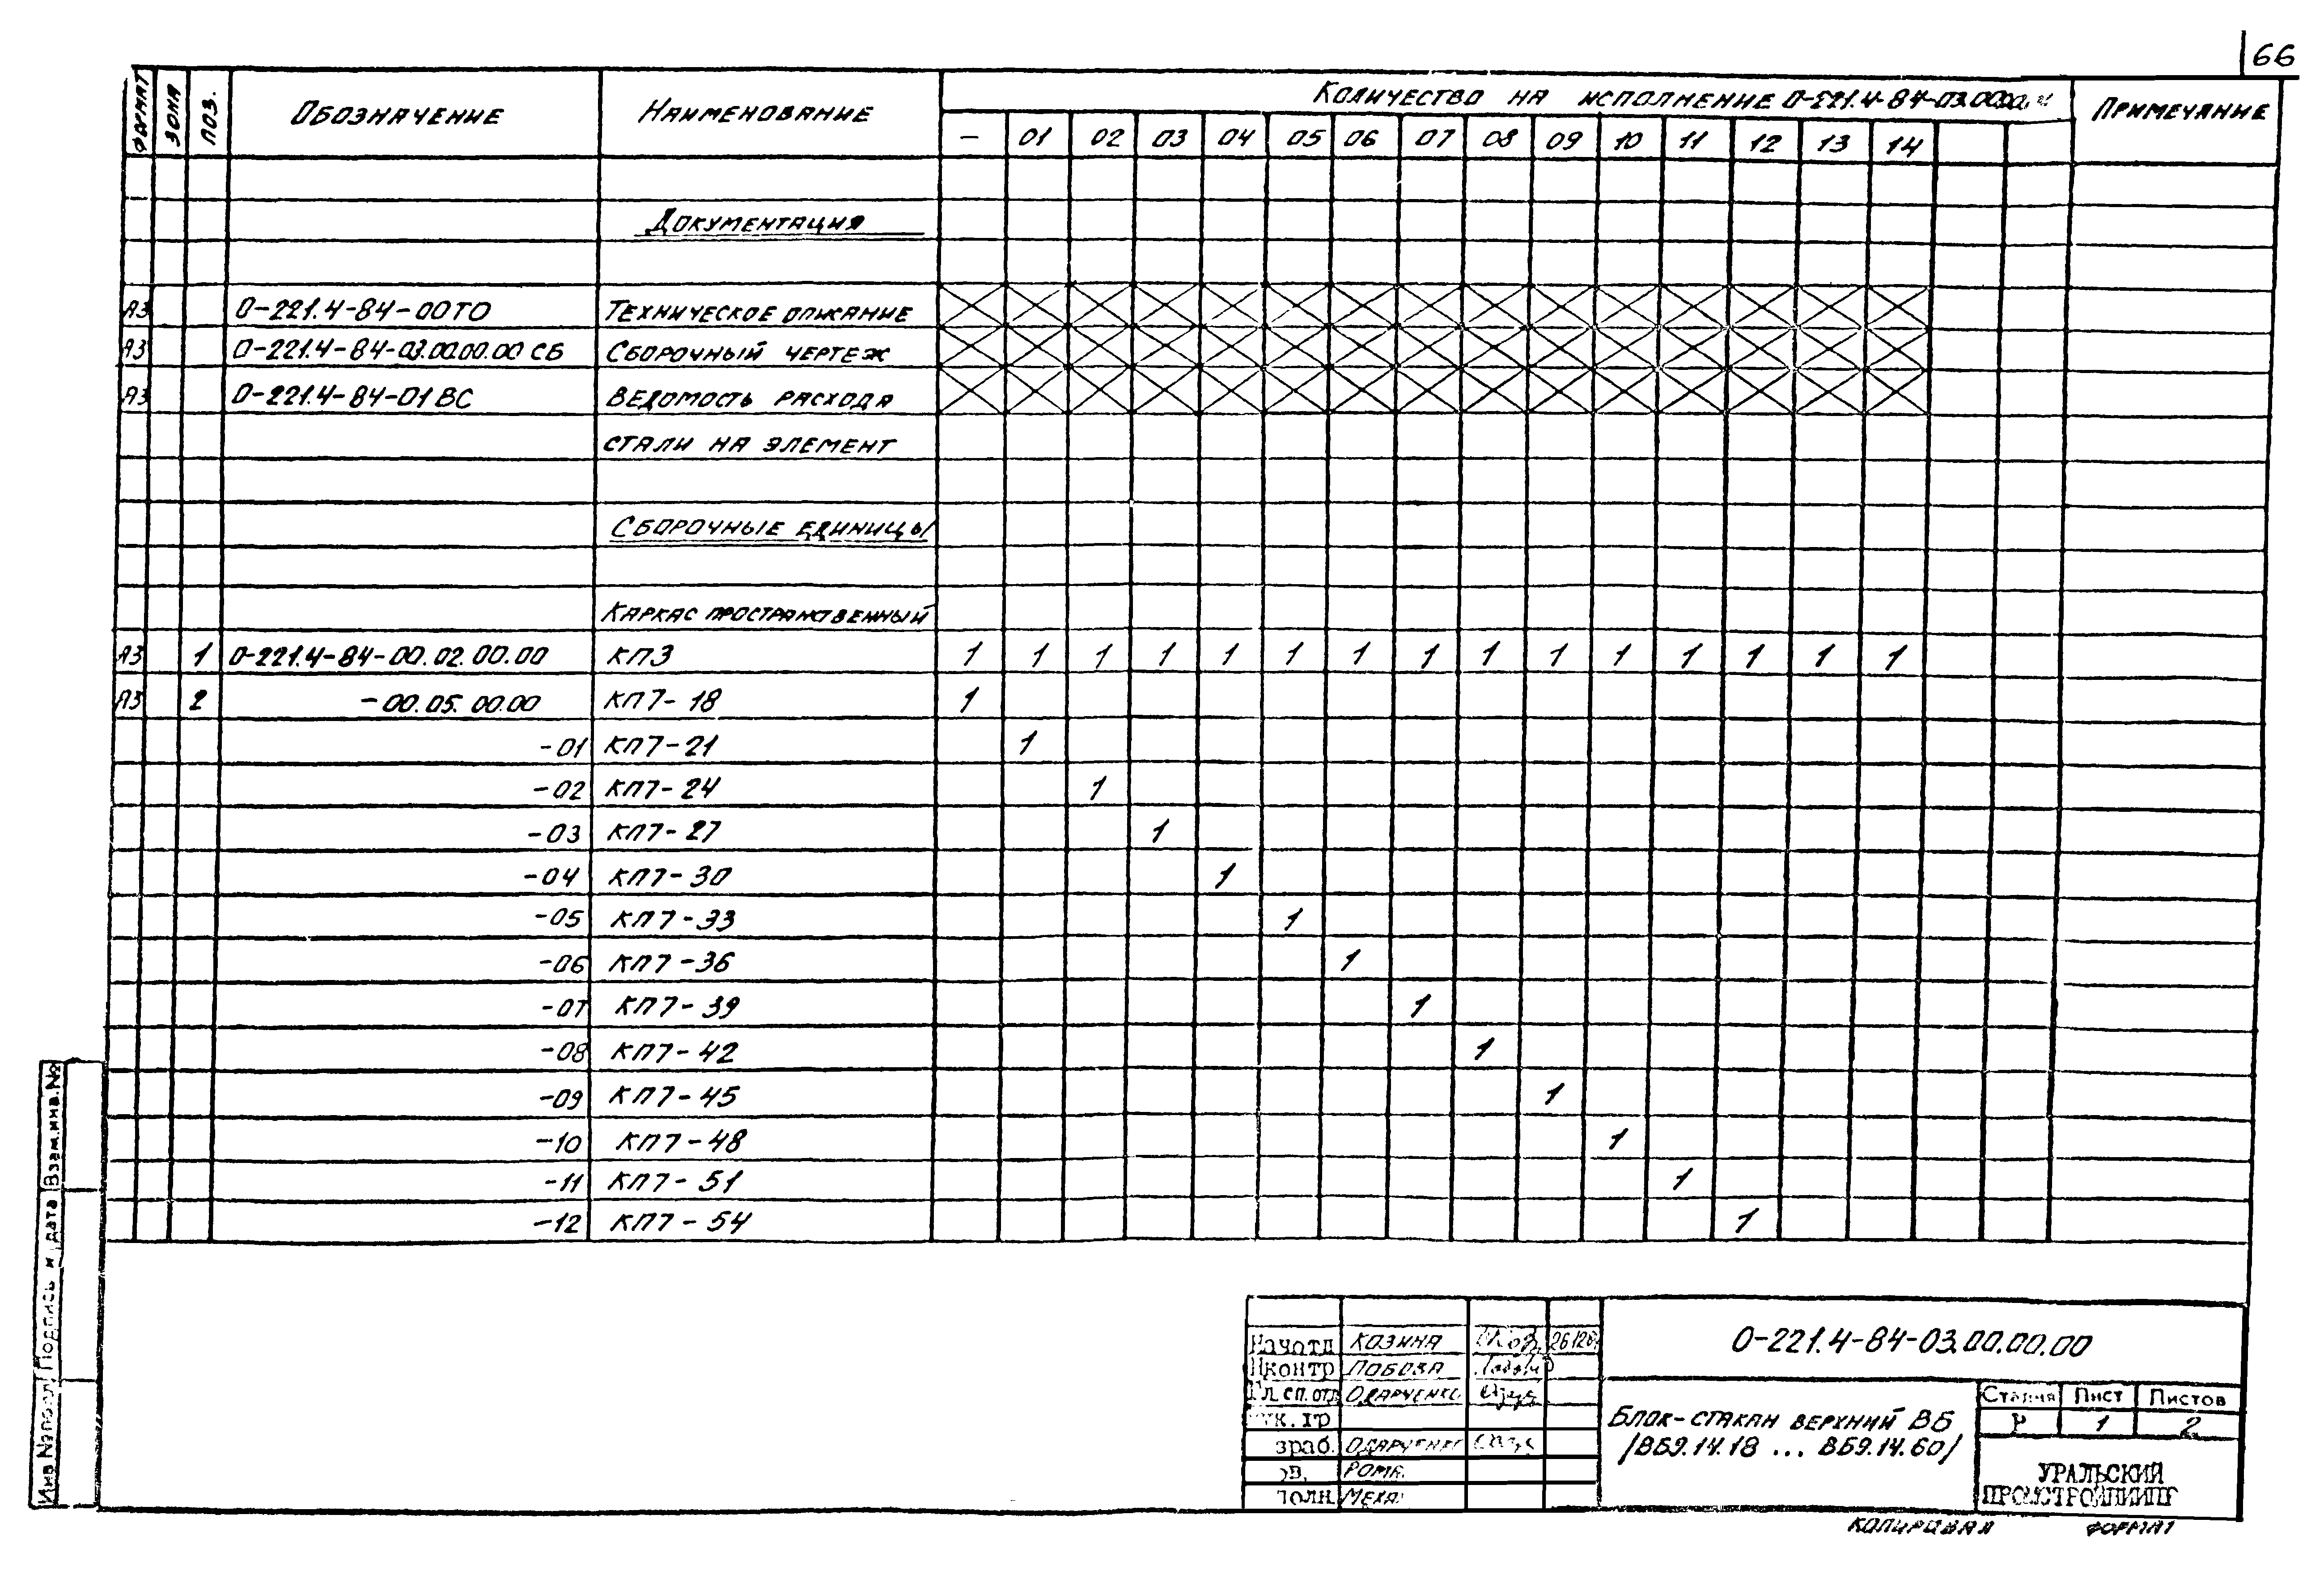 66
ФОРМАТ ЗОНА ПОЗ. ОБОЗНАЧЕНИЕ НАИМЕНОВАНИЕ КОЛИЧЕСТВО НА ИСПОЛНЕНИЕ 0-221.4-84-03.00.00.00 ПРИМЕЧАНИЕ
— 01 02 03 04 05 06 07 08 09 10 11 12 13 14
ДОКУМЕНТАЦИЯ
А3 0-221.4-84-00ТО ТЕХНИЧЕСКОЕ ОПИСАНИЕ
А3 0-221.4-84-03.00.00.00 СБ СБОРОЧНЫЙ ЧЕРТЕЖ
А3 0-221.4-84-01ВС ВЕДОМОСТЬ РАСХОДА
СТАЛИ НА ЭЛЕМЕНТ
СБОРОЧНЫЕ ЕДИНИЦЫ
КАРКАС ПРОСТРАНСТВЕННЫЙ
А3 1 0-221.4-84-00.02.00.00 КП3 1 1 1 1 1 1 1 1 1 1 1 1 1 1 1
А3 2 -00.05.00.00 КП7-18 1
-01 КП7-21 1
-02 КП7-24 1
-03 КП7-27 1
-04 КП7-30 1
-05 КП7-33 1
-06 КП7-36 1
-07 КП7-39 1
-08 КП7-42 1
-09 КП7-45 1
-10 КП7-48 1
-11 КП7-51 1
-12 КП7-54 1
Взам.инв.№
Подпись и дата
Инв №подл
Начотд КОЗИНА
Нконтр ЛОБОВА
Гл.сп.отд ОДАРЧЕНКО
рук.гр
зраб. ОДАРЧЕНКО
ов. РОМА
полн. МЕХА
0-221.4-84-03.00.00.00
БЛОК-СТАКАН ВЕРХНИЙ ВБ
/ВБ9.14.18 ... ВБ9.14.60/
Стадия Лист Листов
Р 1 2
УРАЛЬСКИЙ
ПРОМСТРОЙНИИПР
КОПИРОВАЛ ФОРМАТ